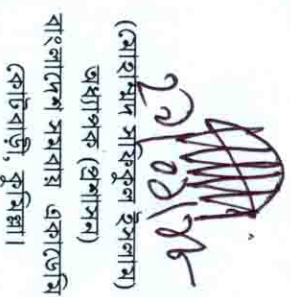 (মোহাম্মদ সফিকুল ইসলাম)
অধ্যাপক (প্রশাসন)
বাংলাদেশ সমবায় একাডেমি
কোটবাড়ী, কুমিল্লা।